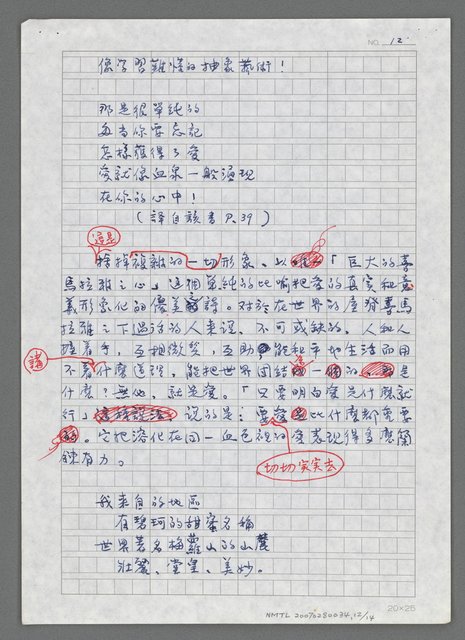 NO. 12
像学習難懂的抽象藝術！
那是很單純的
每当你要忘記
怎樣獲得了愛
愛就像血泉一般湧現
在你的心中！
（譯自該書P.39）
這是
捨掉複雜的一切形象，以「巨大的喜
馬拉雅之心」這個單純的比喻把愛的真实和意
義形象化的優美詩。对於在世界的屋脊喜馬
拉雅之下過活的人來說，不可或缺的，人和人
携着手，互相微笑，互助，能和平地生活而用
諸
不着什麼道理，能把世界团结一個的，
什麼？無他，就是愛。「只要明白愛是什麼就
行」說的是：要愛是比什麼都需要
。它把溶化在同一血色裡的愛表現得多麼簡
切切实实去
鍊有力。
我來自的地區
有碧珂的甜蜜名稱
世界著名梅蘿山的山麓
壯麗、堂皇、美妙。
20×25
NMTL 20070280034,12/14